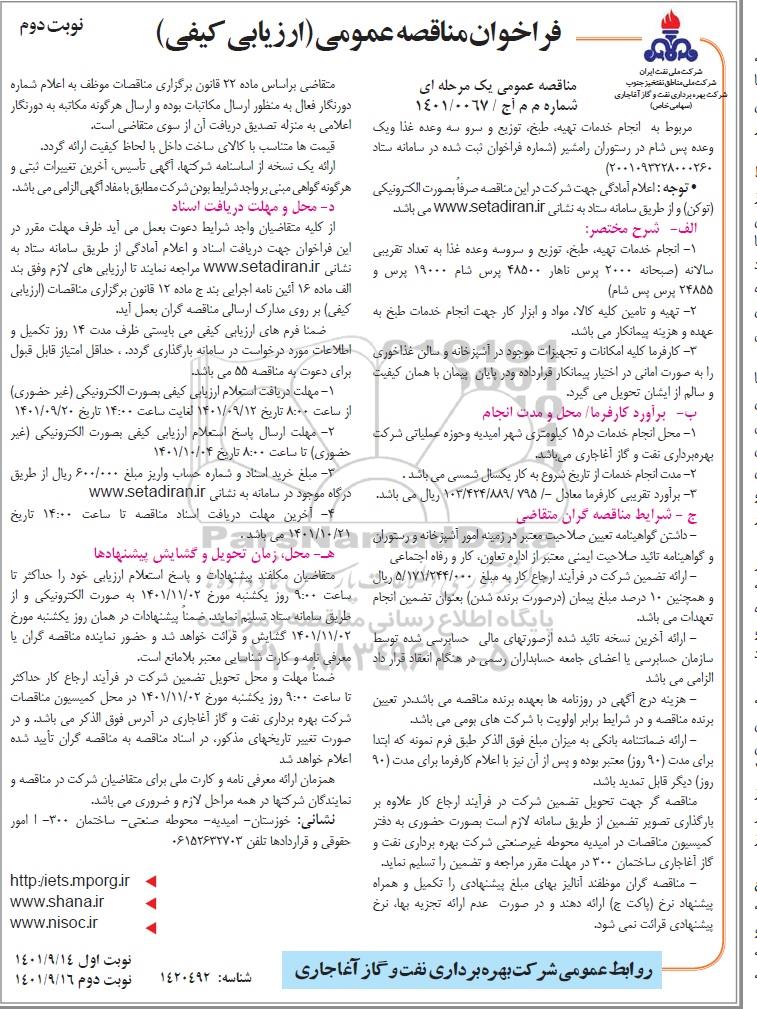 نوبت دوم
فراخوان مناقصه عمومی (ارزیابی کیفی)
شرکت ملی نفت ایران
شرکت ملی مناطق نفتخیز جنوب
شرکت بهره برداری نفت و گاز آغاجاری
(سهامی خاص)
مناقصه عمومی یک مرحله ای
شماره م م آج / ۱۴۰۱/۰۰۶۷
مربوط به انجام خدمات تهیه، طبخ، توزیع و سرو سه وعده غذا ویک
وعده پس شام در رستوران رامشیر (شماره فراخوان ثبت شده در سامانه ستاد
۲۰۰۱۰۹۳۲۲۸۰۰۰۲۶۰)
• توجه : اعلام آمادگی جهت شرکت در این مناقصه صرفاً بصورت الکترونیکی
(توکن) و از طریق سامانه ستاد به نشانی www.setadiran.ir می باشد.
الف- شرح مختصر:
۱- انجام خدمات تهیه، طبخ، توزیع و سروسه وعده غذا به تعداد تقریبی
سالانه (صبحانه ۲۰۰۰ پرس ناهار ۴۸۵۰۰ پرس شام ۱۹۰۰۰ پرس و
۲۴۸۵۵ پرس پس شام)
۲- تهیه و تامین کلیه کالا، مواد و ابزار کار جهت انجام خدمات طبخ به
عهده و هزینه پیمانکار می باشد.
۳- کارفرما کلیه امکانات و تجهیزات موجود در آشپزخانه و سالن غذاخوری
را به صورت امانی در اختیار پیمانکار قرارداده ودر پایان پیمان با همان کیفیت
و سالم از ایشان تحویل می گیرد.
ب- برآورد کارفرما/ محل و مدت انجام
۱- محل انجام خدمات در ۱۵ کیلومتری شهر امیدیه وحوزه عملیاتی شرکت
بهره‌برداری نفت و گاز آغاجاری می‌باشد.
۲- مدت انجام خدمات از تاریخ شروع به کار یکسال شمسی می باشد .
۳- برآورد تقریبی کارفرما معادل -/ ۱۰۳/۴۲۴/۸۸۹/ ۷۹۵ ریال می باشد.
ج - شرایط مناقصه گران متقاضی
- داشتن گواهینامه تعیین صلاحیت معتبر در زمینه امور آشپزخانه و رستوران
و گواهینامه تائید صلاحیت ایمنی معتبر از اداره تعاون، کار و رفاه اجتماعی
- ارائه تضمین شرکت در فرآیند ارجاع کار به مبلغ ۵/۱۷۱/۲۴۴/۰۰۰ ریال
و همچنین ۱۰ درصد مبلغ پیمان (درصورت برنده شدن) بعنوان تضمین انجام
تعهدات می باشد.
- ارائه آخرین نسخه تائید شده ازصورتهای مالی حسابرسی شده توسط
سازمان حسابرسی یا اعضای جامعه حسابداران رسمی در هنگام انعقاد قرار داد
الزامی می باشد
- هزینه درج آگهی در روزنامه ها بعهده برنده مناقصه می باشد.در تعیین
برنده مناقصه و در شرایط برابر اولویت با شرکت های بومی می باشد.
- ارائه ضمانتنامه بانکی به میزان مبلغ فوق الذکر طبق فرم نمونه که ابتدا
برای مدت (۹۰ روز) معتبر بوده و پس از آن نیز با اعلام کارفرما برای مدت (۹۰
روز) دیگر قابل تمدید باشد.
مناقصه گر جهت تحویل تضمین شرکت در فرآیند ارجاع کار علاوه بر
بارگذاری تصویر تضمین از طریق سامانه لازم است بصورت حضوری به دفتر
کمیسیون مناقصات در امیدیه محوطه غیرصنعتی شرکت بهره برداری نفت و
گاز آغاجاری ساختمان ۳۰۰ در مهلت مقرر مراجعه و تضمین را تسلیم نماید.
- مناقصه گران موظفند آنالیز بهای مبلغ پیشنهادی را تکمیل و همراه
پیشنهاد نرخ (پاکت ج) ارائه دهند و در صورت عدم ارائه تجزیه بها، نرخ
پیشنهادی قرائت نمی شود.
متقاضی براساس ماده ۲۲ قانون برگزاری مناقصات موظف به اعلام شماره
دورنگار فعال به منظور ارسال مکاتبات بوده و ارسال هرگونه مکاتبه به دورنگار
اعلامی به منزله تصدیق دریافت آن از سوی متقاضی است.
قیمت ها متناسب با کالای ساخت داخل با لحاظ کیفیت ارائه گردد.
ارائه یک نسخه از اساسنامه شرکتها، آگهی تأسیس، آخرین تغییرات ثبتی و
هرگونه گواهی مبنی بر واجد شرایط بودن شرکت مطابق با مفاد آگهی الزامی می باشد.
د- محل و مهلت دریافت اسناد
از کلیه متقاضیان واجد شرایط دعوت بعمل می آید ظرف مهلت مقرر در
این فراخوان جهت دریافت اسناد و اعلام آمادگی از طریق سامانه ستاد به
نشانی www.setadiran.ir مراجعه نمایند تا ارزیابی های لازم وفق بند
الف ماده ۱۶ آئین نامه اجرایی بند ج ماده ۱۲ قانون برگزاری مناقصات (ارزیابی
کیفی) بر روی مدارک ارسالی مناقصه گران بعمل آید.
ضمنا فرم های ارزیابی کیفی می بایستی ظرف مدت ۱۴ روز تکمیل و
اطلاعات مورد درخواست در سامانه بارگذاری گردد. ، حداقل امتیاز قابل قبول
برای دعوت به مناقصه ۵۵ می باشد.
۱- مهلت دریافت استعلام ارزیابی کیفی بصورت الکترونیکی (غیر حضوری)
از ساعت ۸:۰۰ تاریخ ۱۴۰۱/۰۹/۱۲ لغایت ساعت ۱۴:۰۰ تاریخ ۱۴۰۱/۰۹/۲۰
۲- مهلت ارسال پاسخ استعلام ارزیابی کیفی بصورت الکترونیکی (غیر
حضوری) تا ساعت ۸:۰۰ تاریخ ۱۴۰۱/۱۰/۰۴
۳- مبلغ خرید اسناد و شماره حساب واریز مبلغ ۶۰۰/۰۰۰ ریال از طریق
درگاه موجود در سامانه به نشانی www.setadiran.ir
۴- آخرین مهلت دریافت اسناد مناقصه تا ساعت ۱۴:۰۰ تاریخ
۱۴۰۱/۱۰/۲۱ می باشد .
هـ- محل، زمان تحویل و گشایش پیشنهادها
متقاضیان مکلفند پیشنهادات و پاسخ استعلام ارزیابی خود را حداکثر تا
ساعت ۹:۰۰ روز یکشنبه مورخ ۱۴۰۱/۱۱/۰۲ به صورت الکترونیکی و از
طریق سامانه ستاد تسلیم نمایند. ضمناً پیشنهادات در همان روز یکشنبه مورخ
۱۴۰۱/۱۱/۰۲ گشایش و قرائت خواهد شد و حضور نماینده مناقصه گران با
معرفی نامه و کارت شناسایی معتبر بلامانع است.
ضمناً مهلت و محل تحویل تضمین شرکت در فرآیند ارجاع کار حداکثر
تا ساعت ۹:۰۰ روز یکشنبه مورخ ۱۴۰۱/۱۱/۰۲ در محل کمیسیون مناقصات
شرکت بهره برداری نفت و گاز آغاجاری در آدرس فوق الذکر می باشد. و در
صورت تغییر تاریخهای مذکور، در اسناد مناقصه به مناقصه گران تأیید شده
اعلام خواهد شد
همزمان ارائه معرفی نامه و کارت ملی برای متقاضیان شرکت در مناقصه و
نمایندگان شرکتها در همه مراحل لازم و ضروری می باشد.
نشانی: خوزستان- امیدیه- محوطه صنعتی- ساختمان ۳۰۰- ا امور
حقوقی و قراردادها تلفن ۰۶۱۵۲۶۳۲۷۰۳
http:/iets.mporg.ir
www.shana.ir
www.nisoc.ir
روابط عمومی شرکت بهره برداری نفت و گاز آغاجاری
شناسه: ۱۴۲۰۴۹۲
نوبت اول ۱۴۰۱/۹/۱۴
نوبت دوم ۱۴۰۱/۹/۱۶